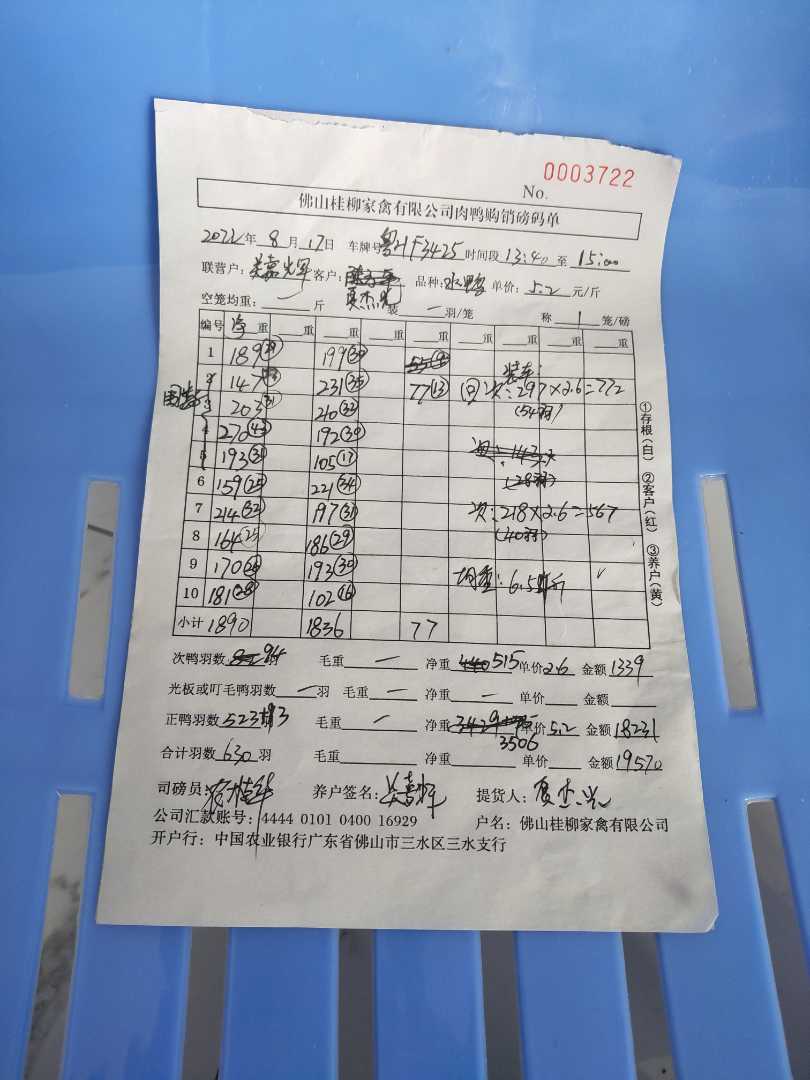 0003722
No.
佛山桂柳家禽有限公司肉鸭购销磅码单
2022年 8 月 17日 车牌号 粤HF3425 时间段 13:40 至 15:00
联营户: 客户: 夏杰光 品种: 水鸭 单价: 5.2 元/斤
空笼均重: 一 斤 装 一 羽/笼 称 1 笼/磅
编号 净重 重 重 重 重 重 重 重 重
1 189 199(30) 装车:
2 147 231(35) 77(13) 次: 297×2.6=772
3 203(31) 210(32) (54羽)
4 270(43) 192(30)
5 193(31) 105(17)
6 159(25) 221(34) (28羽)
7 214(32) 197(31) 次: 218×2.6=567
8 164(25) 186(29) (40羽)
9 170 193(30) 均重: 6.5斤
10 181(28) 102(16)
小计 1890 1836 77
①存根(白) ②客户(红) ③养户(黄)
次鸭羽数 94 羽 毛重 一 净重 515 单价 2.6 金额 1339
光板或叮毛鸭羽数 一 羽 毛重 一 净重 一 单价 金额
正鸭羽数 523 羽 毛重 一 净重 3506 单价 5.2 金额 18231
合计羽数 630 羽 毛重 净重 单价 金额 19570
司磅员: 养户签名: 提货人: 夏杰光
公司汇款账号: 4444 0101 0400 16929 户名: 佛山桂柳家禽有限公司
开户行: 中国农业银行广东省佛山市三水区三水支行